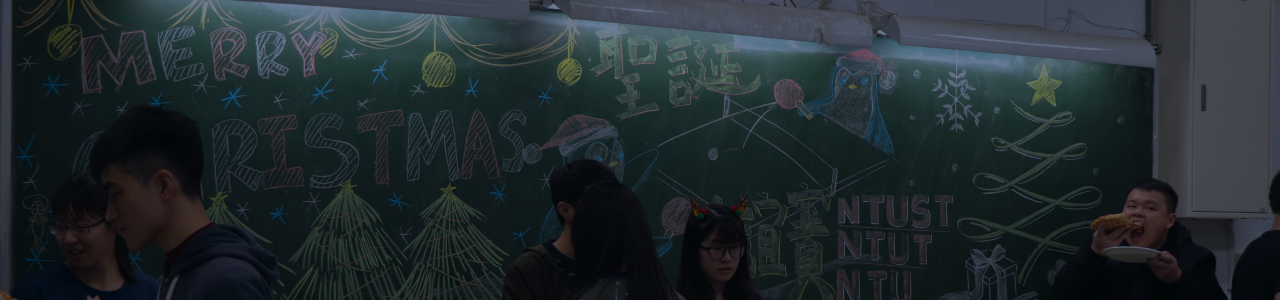 MERRY
RISTMAS
聖誕
誼賽
NTUST
NTUT
NTU